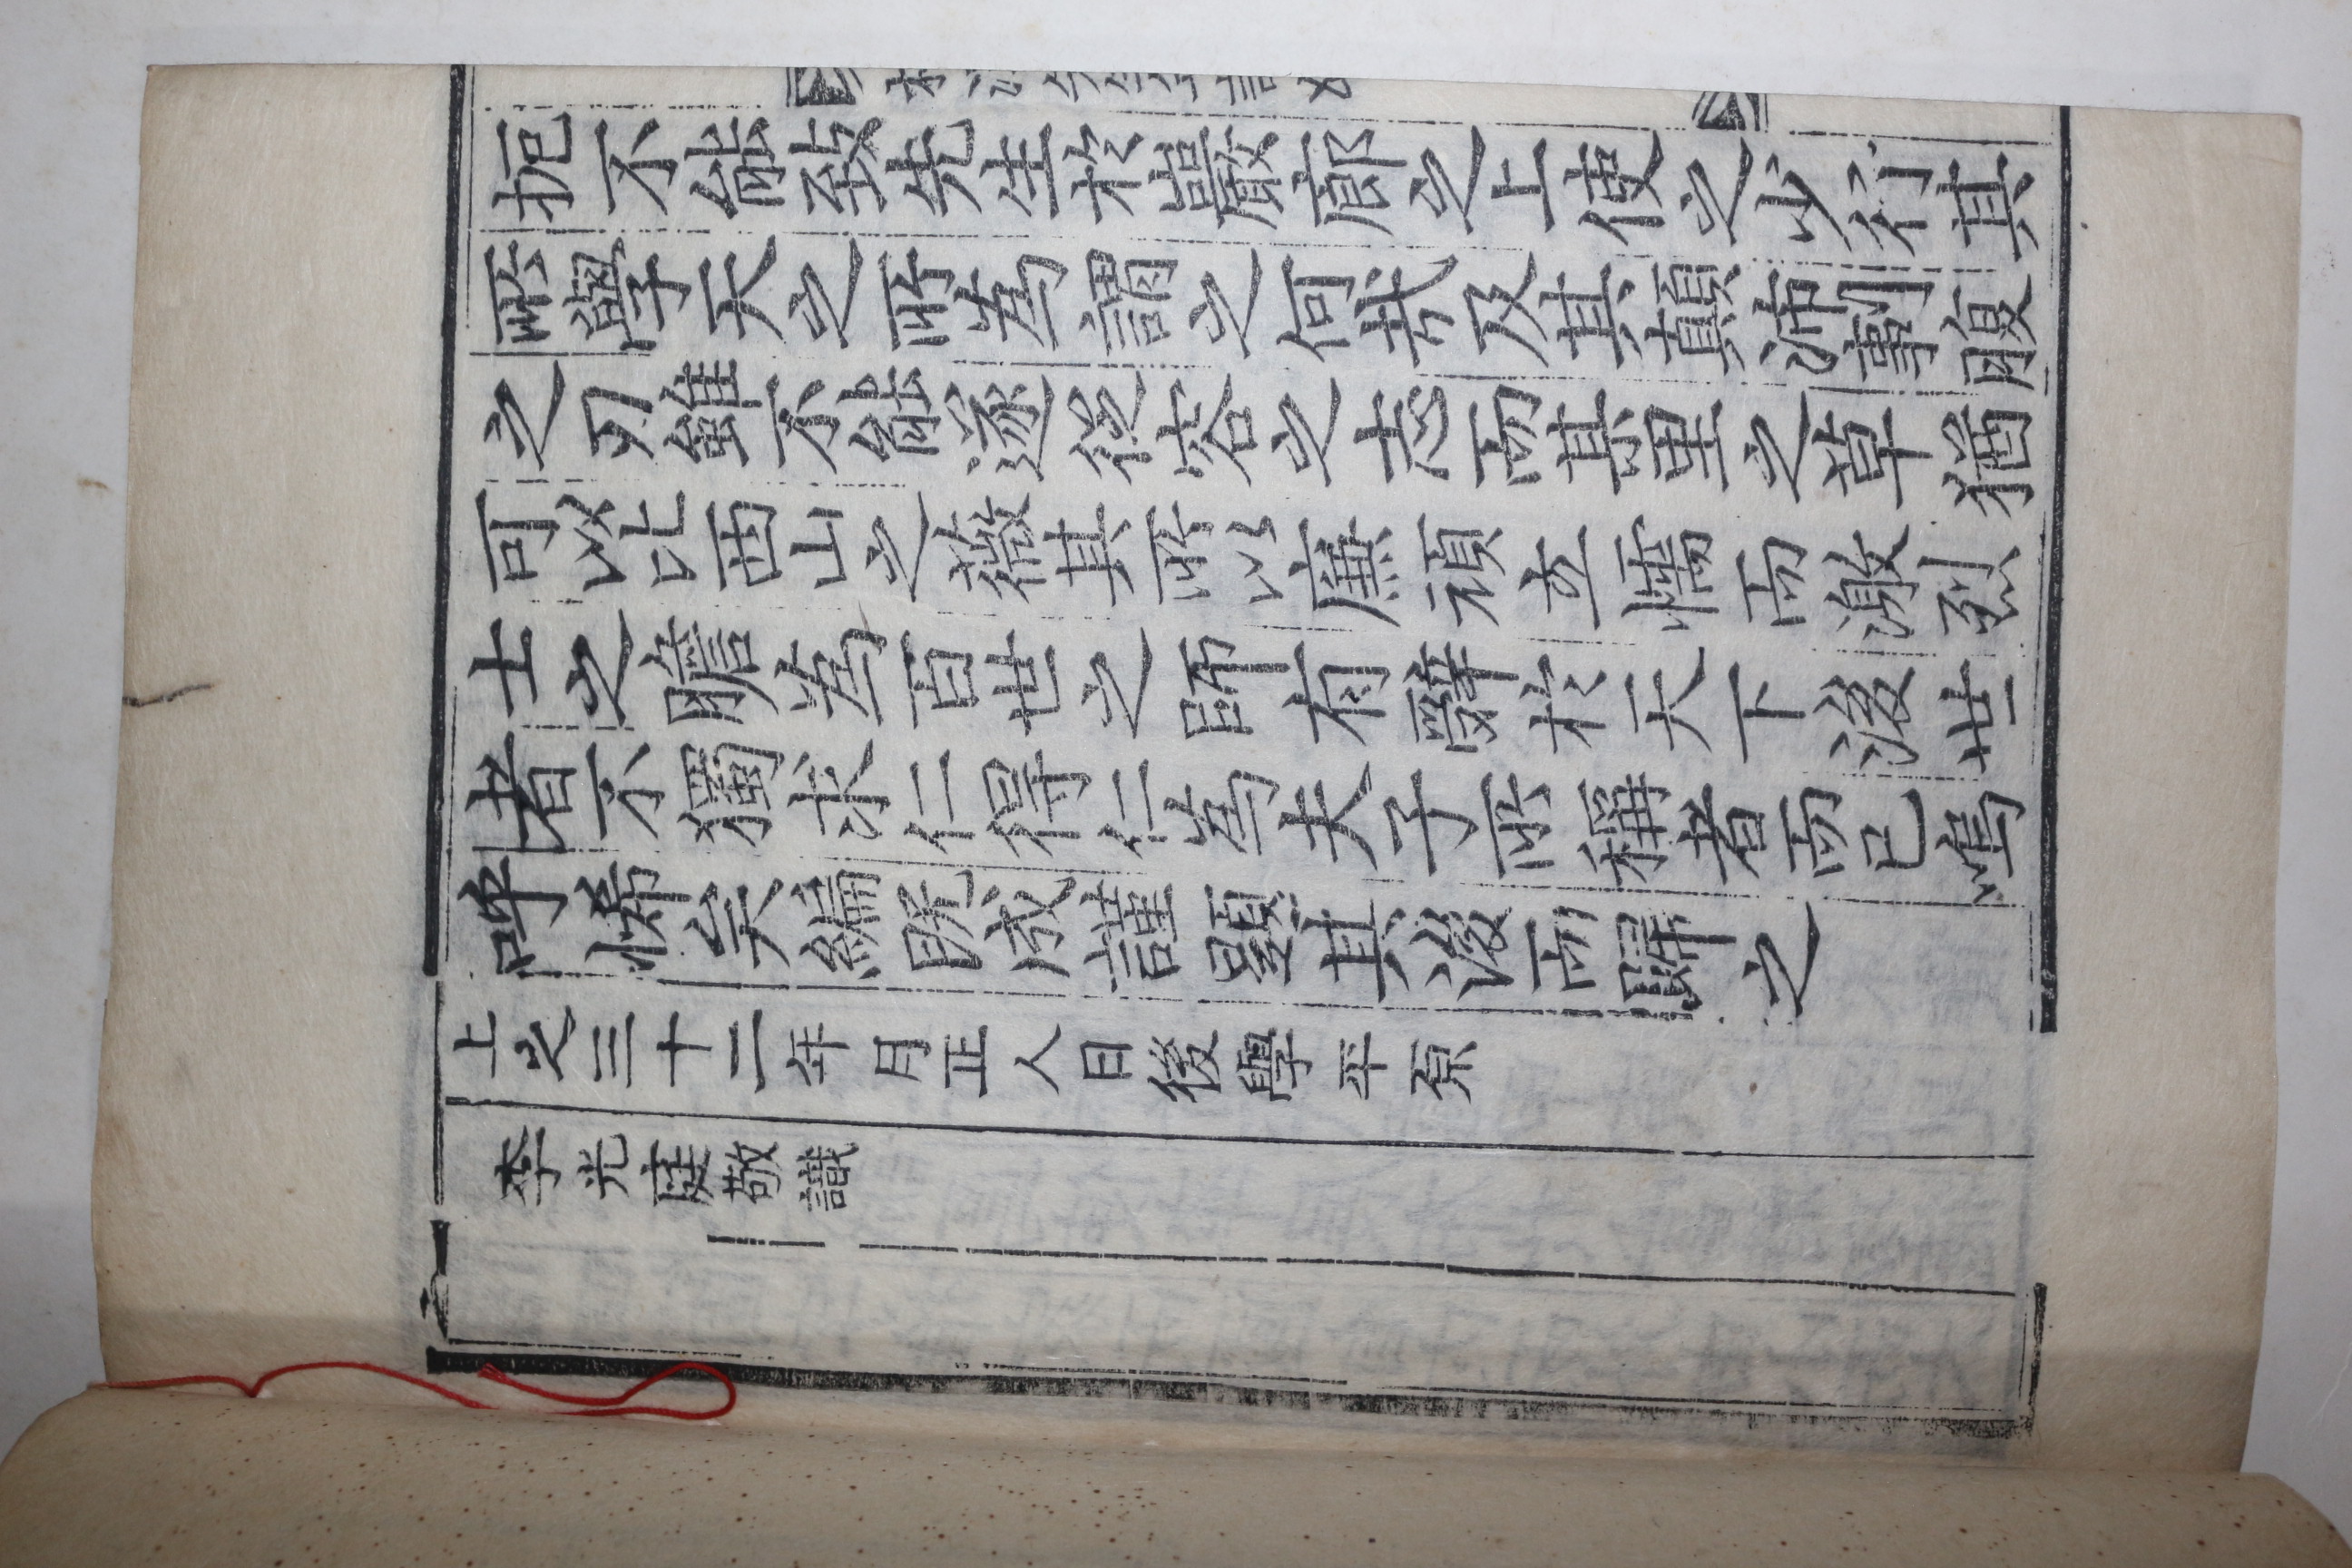 扼不能致先生於巖廊之上使之少行其
所學天之所為謂之何哉及其顛沛剚腹
之刃雖不能遂從容之志而某里之草猶
可以比西山之薇其所以廉頑立懦而激烈
士之膽為百世之師有辭於天下後世
者不獨求仁得仁為夫子所稱者而已嗚
呼悕矣編既成謹題其後而歸之
上之三十二年月正人日後學平原
李光庭敬識